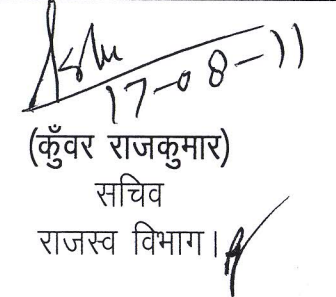 17-08-11
(कुँवर राजकुमार)
सचिव
राजस्व विभाग।